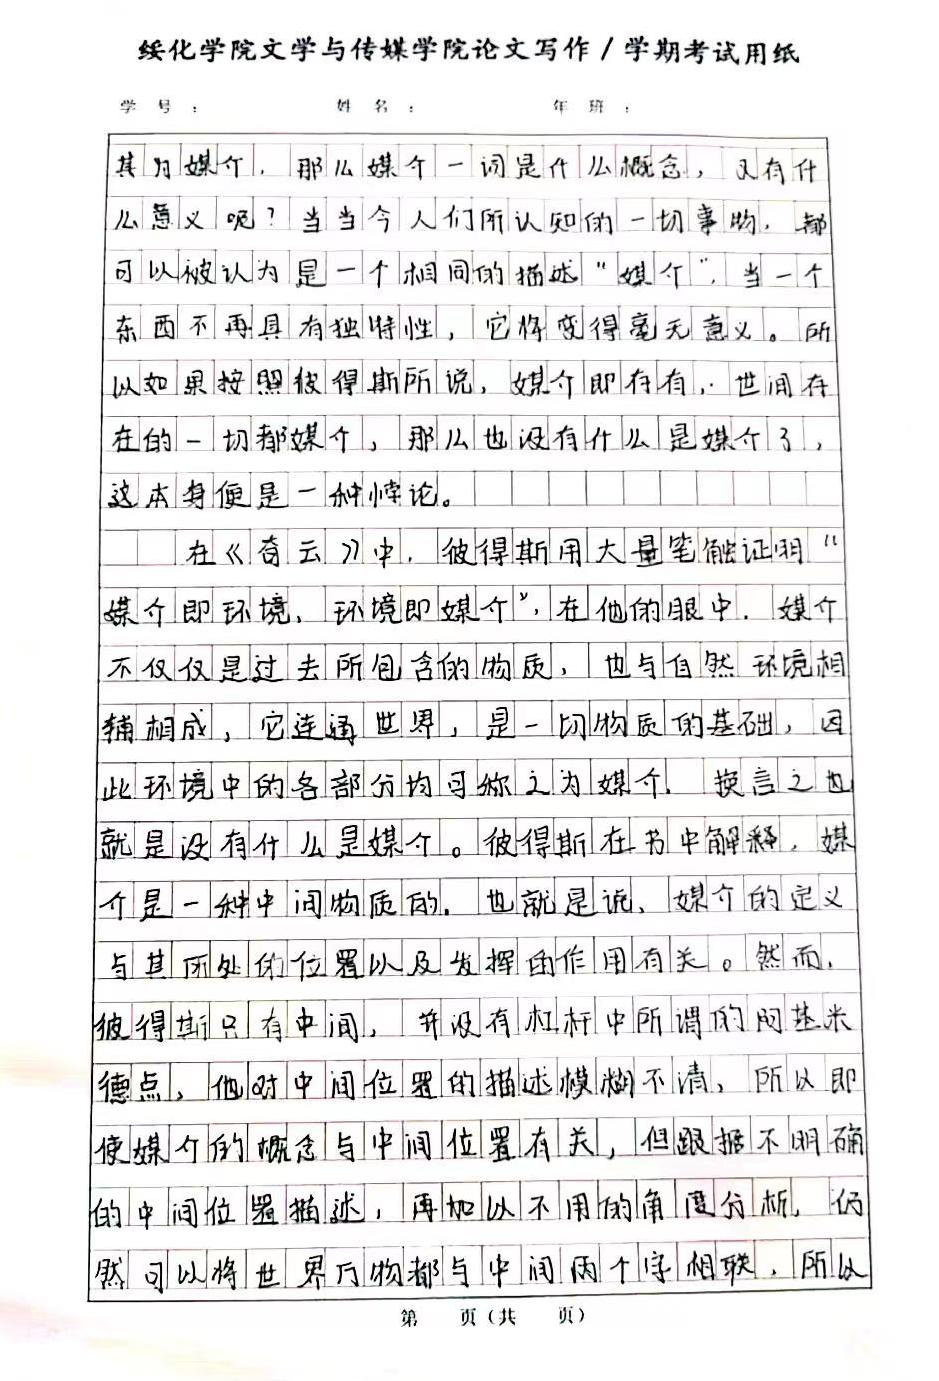 绥化学院文学与传媒学院论文写作/学期考试用纸
学号: 姓名: 年班:
其为媒介，那么媒介一词是什么概念，又有什
么意义呢？当当今人们所认知的一切事物，都
可以被认为是一个相同的描述“媒介”，当一个
东西不再具有独特性，它将变得毫无意义。所
以如果按照彼得斯所说，媒介即存有，世间存
在的一切都媒介，那么也没有什么是媒介了，
这本身便是一种悖论。
在《奇云》中，彼得斯用大量笔触证明“
媒介即环境，环境即媒介”，在他的眼中，媒介
不仅仅是过去所包含的物质，也与自然环境相
辅相成，它连通世界，是一切物质的基础，因
此环境中的各部分均可称之为媒介，换言之也
就是没有什么是媒介。彼得斯在书中解释，媒
介是一种中间物质的，也就是说，媒介的定义
与其所处的位置以及发挥的作用有关。然而，
彼得斯只有中间，并没有杠杆中所谓的阿基米
德点，他对中间位置的描述模糊不清，所以即
使媒介的概念与中间位置有关，但跟据不明确
的中间位置描述，再加以不用的角度分析，仍
然可以将世界万物都与中间两个字相联，所以
第 页（共 页）